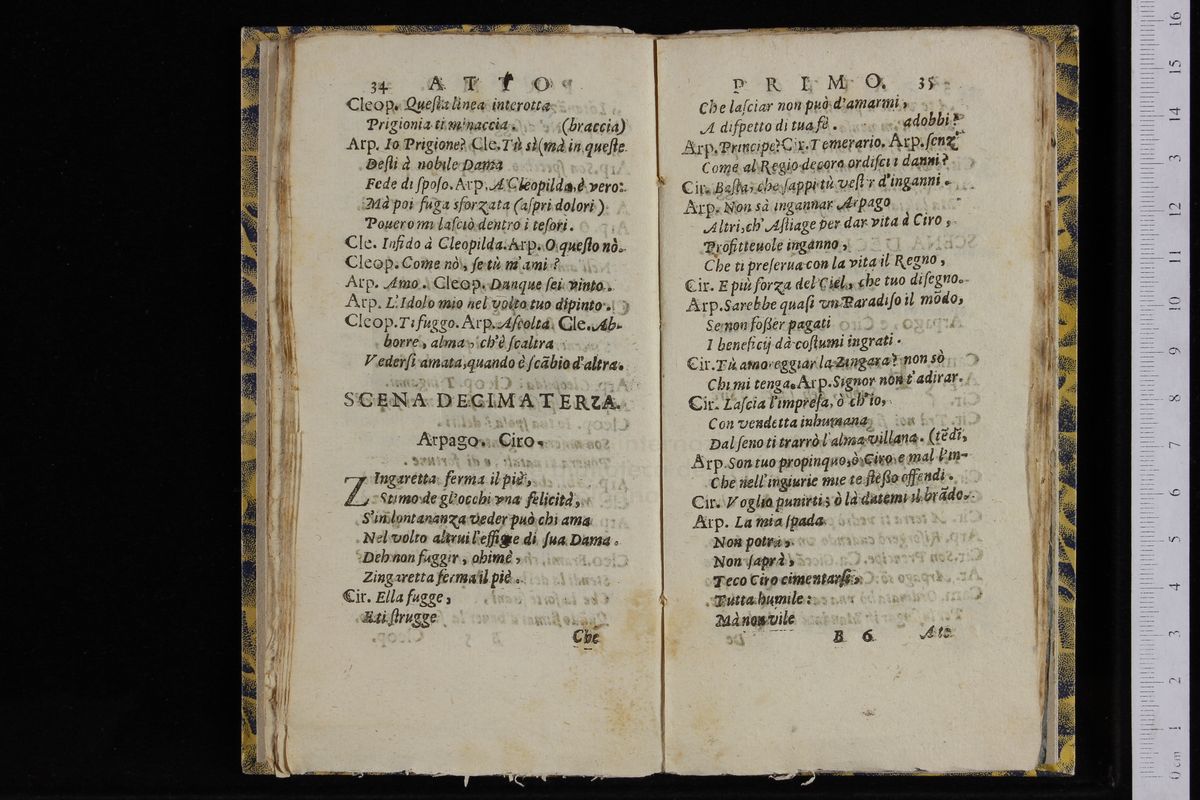 34 ATTO
Cleop. Queſta linea interotta
Prigionia ti minaccia. (braccia)
Arp. Io Prigione? Cle. Tù sì (mà in queſte
Deſti à nobile Dama
Fede di ſpoſo. Arp. A Cleopilda, è vero:
Mà poi fuga sforzata (aſpri dolori)
Pouero mi laſciò dentro i teſori.
Cle. Infido à Cleopilda. Arp. O queſto nò.
Cleop. Come nò, ſe tù m'ami?
Arp. Amo. Cleop. Dunque ſei vinto.
Arp. L'Idolo mio nel volto tuo dipinto.
Cleop. Ti fuggo. Arp. Aſcolta Cle. Ab-
borre, alma, ch'è ſcaltra
Vederſi amata, quando è ſcãbio d'altra.
SCENA DECIMATERZA.
Arpago. Ciro.
Zingaretta ferma il piè,
Stimo de gl'occhi vna felicità,
S'in lontananza veder può chi ama
Nel volto altrui l'effigie di ſua Dama.
Deh non fuggir, ohimè,
Zingaretta ferma il piè.
Cir. Ella fugge,
E ti ſtrugge
Che
PRIMO. 35
Che laſciar non può d'amarmi,
A diſpetto di tua fè. adobbi?
Arp. Principe? Cir. Temerario. Arp. ſenz'
Come al Regio decoro ordiſci i danni?
Cir. Baſta, che ſappi tù veſtir d'inganni.
Arp. Non sà ingannar Arpago
Altri, ch'Aſtiage per dar vita à Ciro,
Profitteuole inganno,
Che ti preſerua con la vita il Regno,
Cir. E più forza del Ciel, che tuo diſegno.
Arp. Sarebbe quaſi vn Paradiſo il mõdo,
Se non foſſer pagati
I beneficij dà coſtumi ingrati.
Cir. Tù amoreggiar la Zingara? non sò
Chi mi tenga. Arp. Signor non t'adirar.
Cir. Laſcia l'impreſa, ò ch'io,
Con vendetta inhumana
Dal ſeno ti trarrò l'alma villana. (tẽdi,
Arp. Son tuo propinquo, ò Ciro e mal l'in-
Che nell'ingiurie mie te ſteſſo offendi.
Cir. Voglio punirti; ò là datemi il brãdo.
Arp. La mia ſpada
Non potrà,
Non ſaprà,
Teco Ciro cimentarſi,
Tutta humile:
Mà non vile
B 6